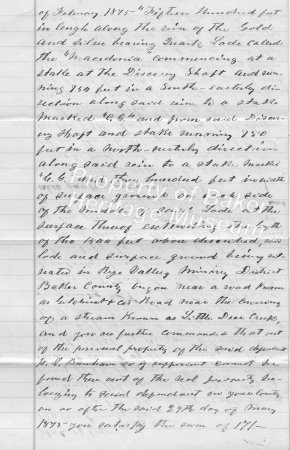 of February 1875 - "Fifteen Hundred feet
in length along the vein of the Gold
and Silver bearing Quartz Lode called
the "Macedonia" commencing at a
stake at the Discovery Shaft and run-
ning 750 feet in a South-easterly di-
rection along said vein to a stake
Marked and from said Discov-
ery Shaft and stake running 750
feet in a North-westerly direction
along said vein to a stake marked
And two hundred feet in width
of surface ground on each side
of the middle of said Lode at the
surface thereof extending the length
of the 1500 feet above described, said
lode and surface ground being situ-
ated in Rye Valley Mining District
Baker County Oregon near a road known
as & Cos Road near the crossing
of a stream known as Little Deer Creek,
and you are further commanded that out
of the personal property of the said defendant
or if sufficient cannot be
found then out of the real property be-
longing to said defendant in your County
on or after the said 29th day of May
1875 you satisfy the sum of 171-
Property of Baker
Heritage Museum